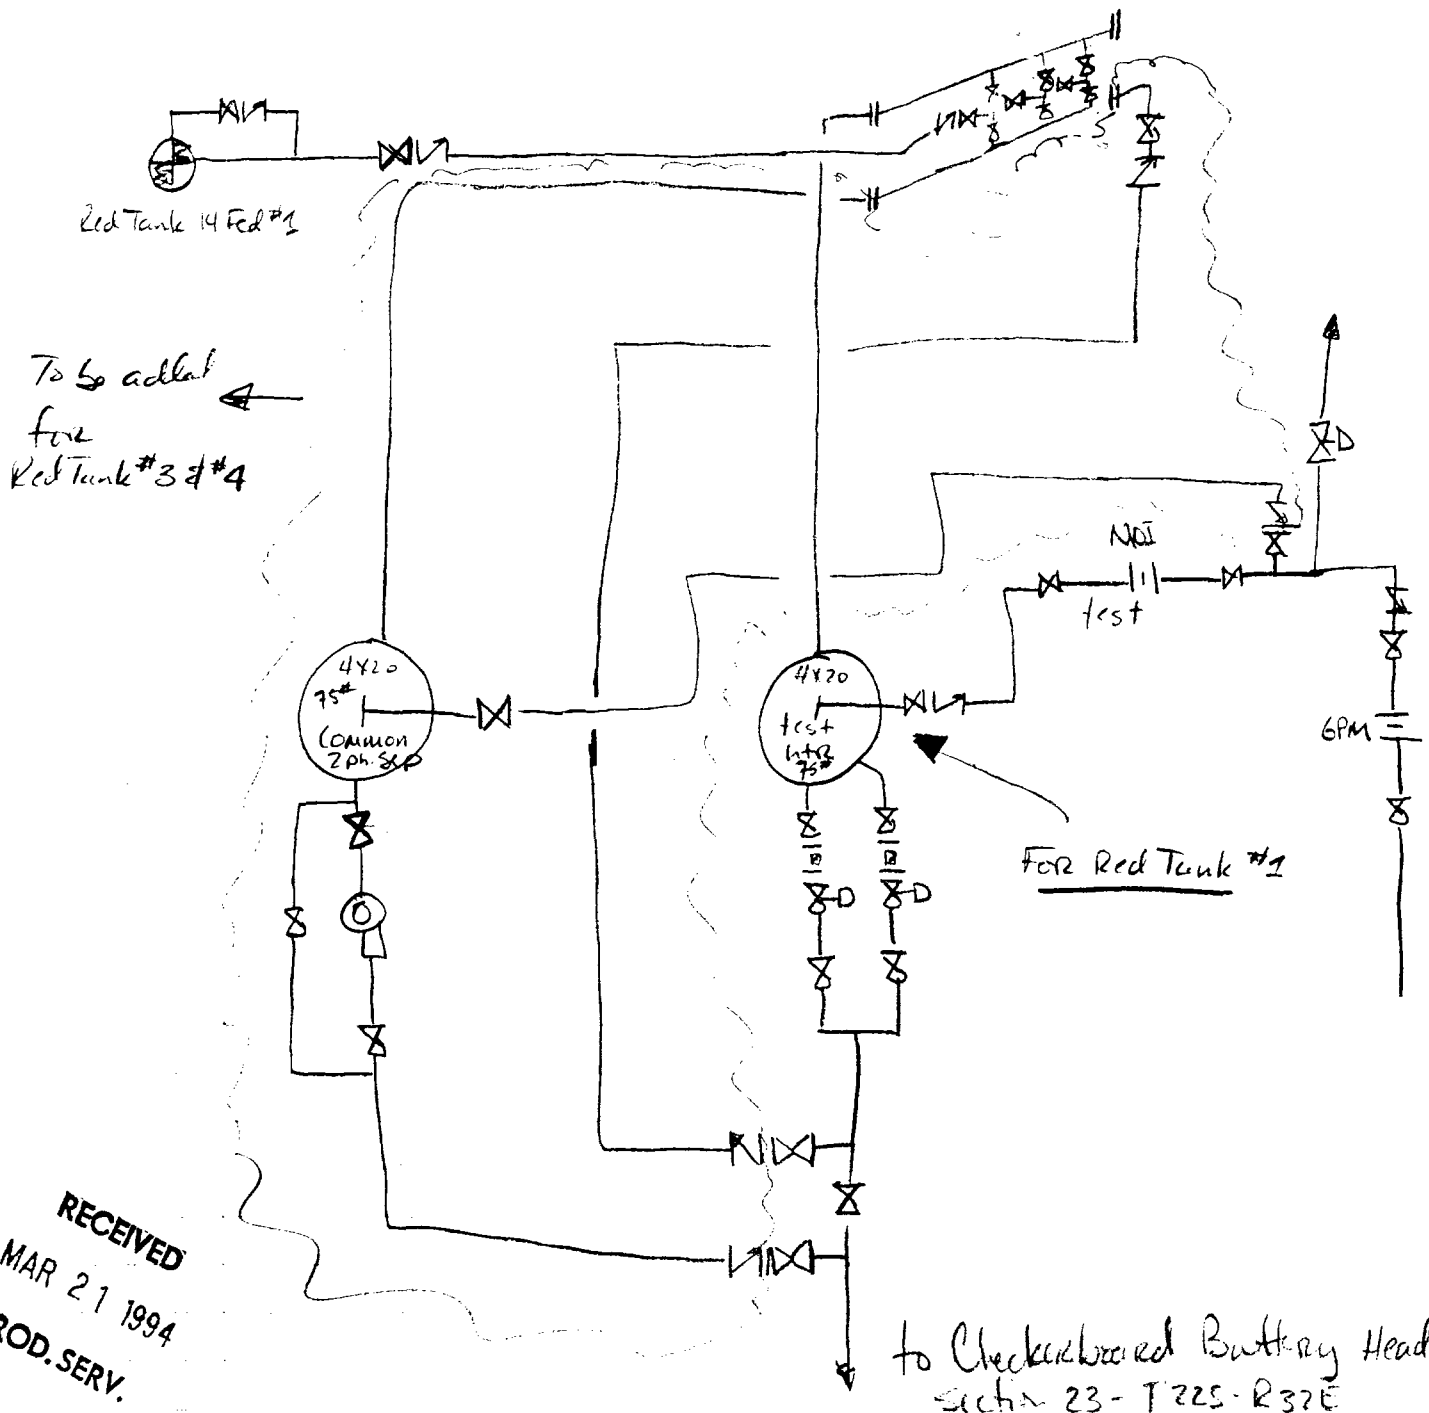 Red Tank 14 Fed #1
To be added
for
Red Tank #3 & #4
NDI
test
4X20
75#
Common
2 ph. Sep
4X20
test
htr
75#
GPM
For Red Tank #1
RECEIVED
MAR 21 1994
ROD. SERV.
to Checkerboard Battery Head
Section 23 - T22S - R32E